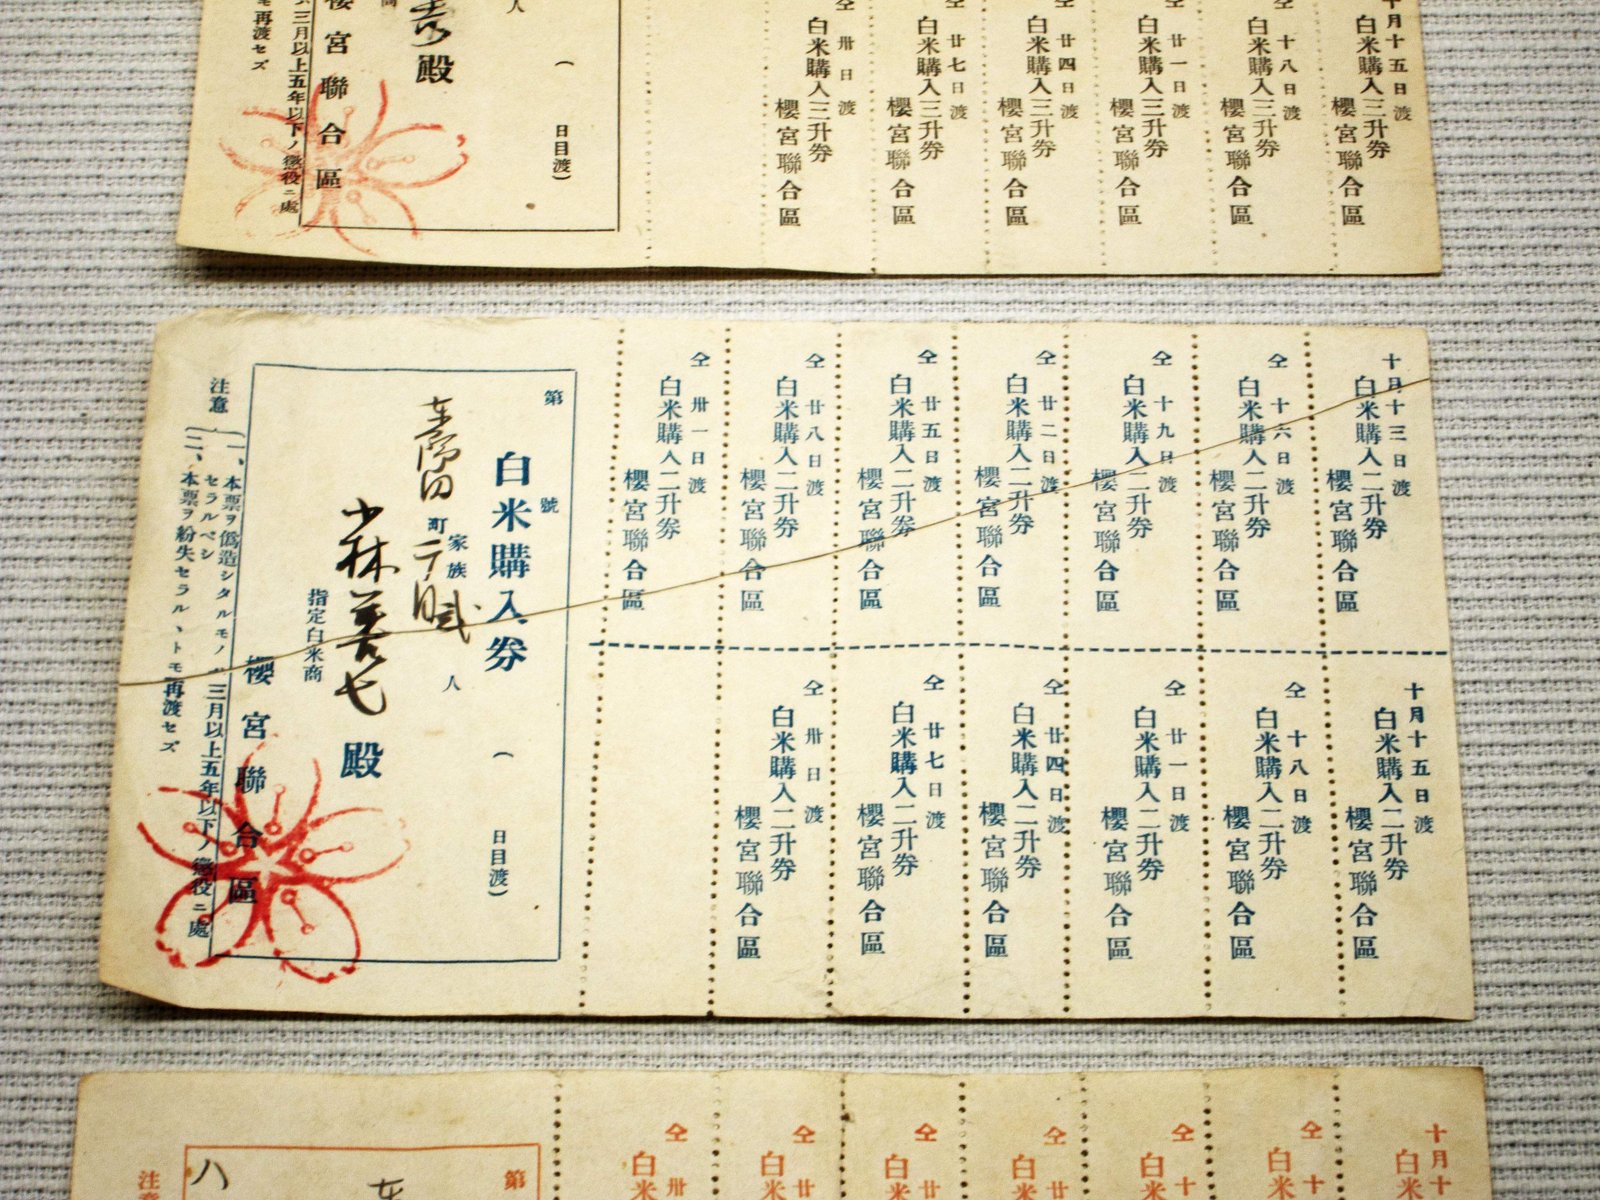 十月十五日渡
白米購入三升券
櫻宮聯合區
仝 十八日渡
白米購入三升券
櫻宮聯合區
仝 廿一日渡
白米購入三升券
櫻宮聯合區
仝 廿四日渡
白米購入三升券
櫻宮聯合區
仝 廿七日渡
白米購入三升券
櫻宮聯合區
仝 卅日渡
白米購入三升券
櫻宮聯合區
人
(日目渡)
殿
櫻宮聯合區
三月以上五年以下ノ懲役ニ處
モ再渡セズ
十月十三日渡
白米購入二升券
櫻宮聯合區
仝 十六日渡
白米購入二升券
櫻宮聯合區
仝 十九日渡
白米購入二升券
櫻宮聯合區
仝 廿二日渡
白米購入二升券
櫻宮聯合區
仝 廿五日渡
白米購入二升券
櫻宮聯合區
仝 廿八日渡
白米購入二升券
櫻宮聯合區
仝 卅一日渡
白米購入二升券
櫻宮聯合區
十月十五日渡
白米購入二升券
櫻宮聯合區
仝 十八日渡
白米購入二升券
櫻宮聯合區
仝 廿一日渡
白米購入二升券
櫻宮聯合區
仝 廿四日渡
白米購入二升券
櫻宮聯合區
仝 廿七日渡
白米購入二升券
櫻宮聯合區
仝 卅日渡
白米購入二升券
櫻宮聯合區
第 號
白米購入券 (日目渡)
家族 人
町
小林 七殿
指定白米商
櫻宮聯合區
注意 一、本票ヲ僞造シタルモノハ三月以上五年以下ノ懲役ニ處
セラルベシ
二、本票ヲ紛失セラルヽトモ再渡セズ
十月十
白米
仝 十
白米
仝 十
白米
仝 廿
白米
仝 廿
白米
仝 廿
白米
仝 卅
白米
第
八
注意